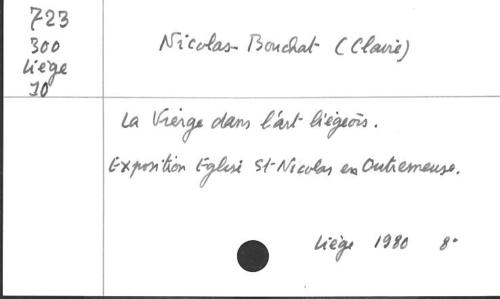 723
300
Liège
10
Nicolas-Bouchat (Claire)
La Vierge dans l'art liégeois.
Exposition Eglise St-Nicolas en Outremeuse.
Liège 1980 8°